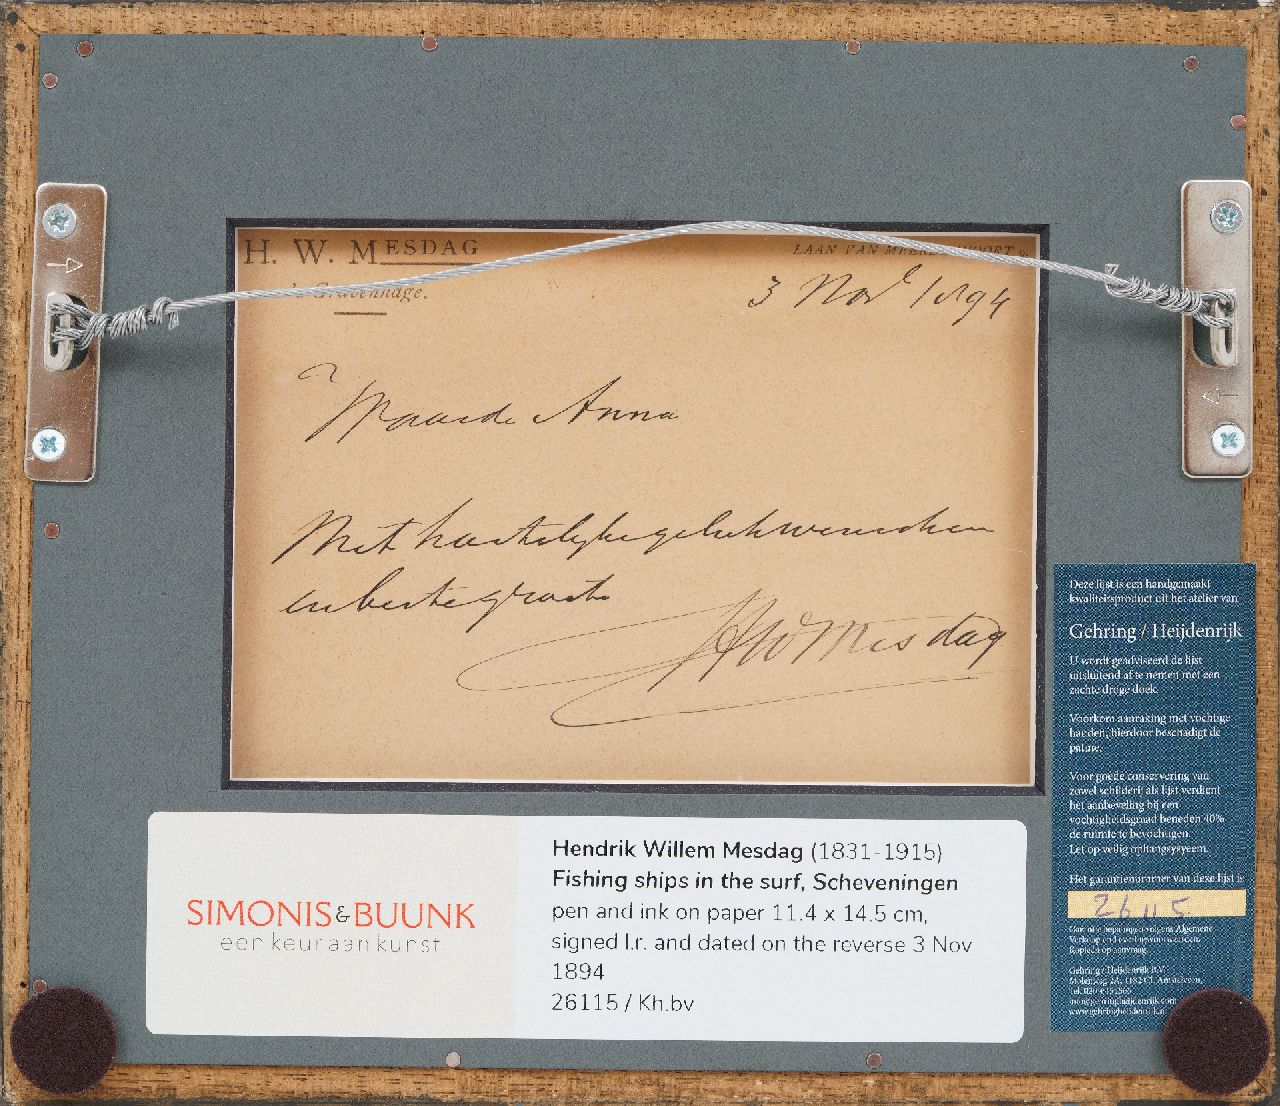 H. W. MESDAG
LAAN VAN MEERDERVOORT 9.
's Gravenhage.
3 Nov 1894
Waarde Anna
Met hartelyke gelukwenschen
en beste groete
HWMesdag
SIMONIS&BUUNK
een keur aan kunst
Hendrik Willem Mesdag (1831-1915)
Fishing ships in the surf, Scheveningen
pen and ink on paper 11.4 x 14.5 cm,
signed l.r. and dated on the reverse 3 Nov
1894
26115 / Kh.bv
Deze lijst is een handgemaakt
kwaliteitsproduct uit het atelier van
Gehring / Heijdenrijk
U wordt geadviseerd de lijst
uitsluitend af te nemen met een
zachte droge doek.
Voorkom aanraking met vochtige
handen, hierdoor beschadigt de
patine.
Voor goede conservering van
zowel schilderij als lijst verdient
het aanbeveling bij een
vochtigheidsgraad beneden 40%
de ruimte te bevochtigen.
Let op veilig ophangsysteem.
Het garantienummer van deze lijst is
26115
Garantie bepalingen volgens Algemene
Verkoop en Leveringsvoorwaarden.
Kopieën op aanvraag.
Gehring / Heijdenrijk B.V.